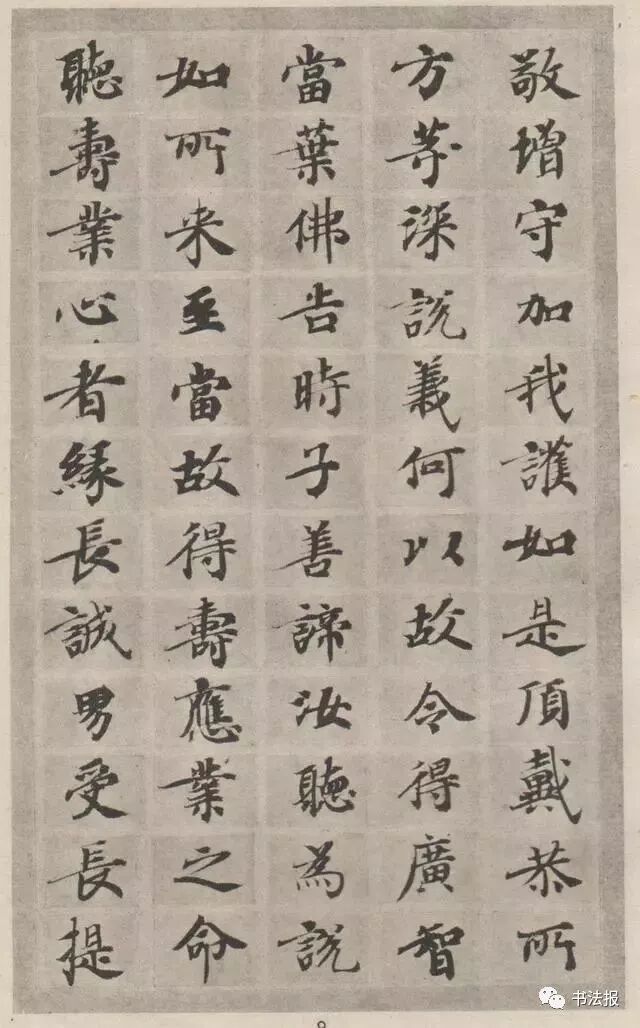 敬增守加我護如是頂戴恭所
方等深說義何以故令得廣智
當葉佛告時子善諦汝聽為說
如所来至當故得壽應業之命
聽壽業心者緣長誠男受長提
书法报